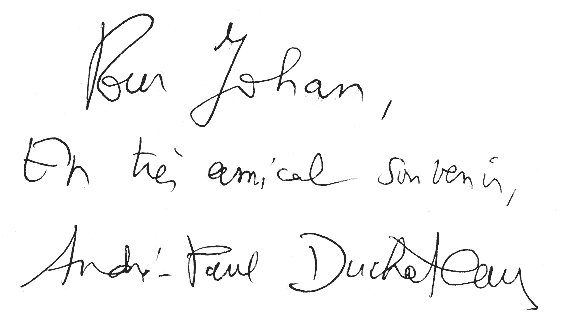 Pour Johan,
En très amical souvenir,
André-Paul Duchateau